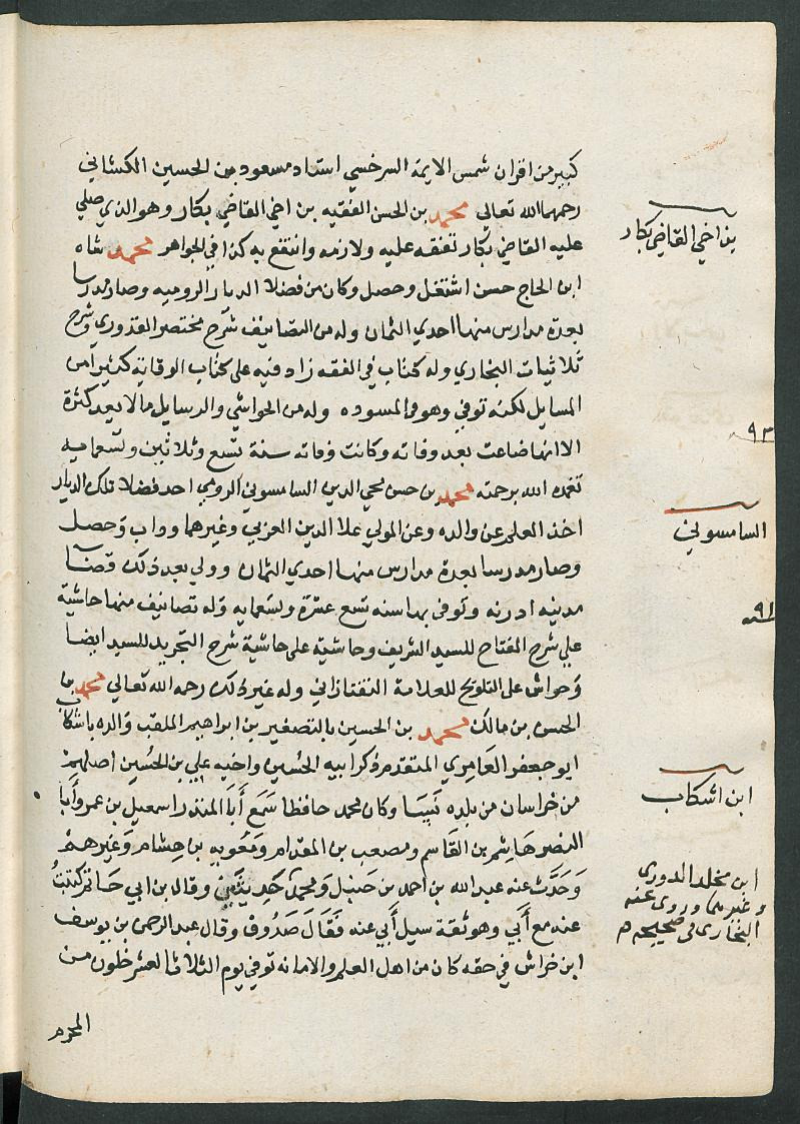 كبير من اقران شمس الايمة السرخسي استاد مسعود بن الحسين الكشاني
رحمهما الله تعالى محمد بن الحسن الفقيه بن اخي القاضي بكار وهو الذي صلي
عليه القاضي بكار تفقه عليه ولازمه وانتفع به كذا في الجواهر محمد شاه
ابن الحاج حسن اشتغل وحصل وكان من فضلا الديار الروميه وصار مدرسا
بعدة مدارس منها احدي الثمان وله من التصانيف شرح مختصر القدوري وشرح
ثلاثيات البخاري وله كتاب في الفقه زاد فيه على كتاب الوقايه كثيرا من
المسايل لكنه توفي وهو في المسوده وله من الحواشي والرسايل مالا يعد كثرة
الا انها ضاعت بعد وفاته وكانت وفاته سنة تسع وثلاثين وتسعمايه
تغمده الله برحمته محمد بن حسن محي الدين السامسوني الرومي احد فضلا تلك الديار
اخذ العلم عن والده وعن المولي علا الدين العربي وغيرهما وداب وحصل
وصار مدرسا بعدة مدارس منها احدي الثمان وولي بعد ذلك قضآ
مدينه ادرنه وتوفى بها سنه تسع عشرة وتسعمايه وله تصانيف منها حاشية
علي شرح المفتاح للسيد الشريف وحاشية على حاشية شرح التجريد للسيد ايضا
وحواش على التلويح للعلامة التفتازاني وله غير ذلك رحمه الله تعالي محمد بن
الحسن بن مالك محمد بن الحسين بالتصغير بن ابراهيم الملقب والده باشكاب
ابو جعفر العامري المتقدم ذكر ابيه الحُسين واخيه علي بن الحُسين اصلهم
من خراسان من بلده نَسَا وكان محمد حافظا سَمَع أَبَا المنذر اسمعيل بن عمر وأبا
النضر هاشم بن القاسم ومصعب بن المقدام ومعُويه بن هِشام وَغيرهم
وَحَدَّث عنه عبد الله بن أحمد بن حَنبَل وَمحمد وقال بن ابي حَاتم كتبتُ
عنه مع أَبي وهو ثقة سيل أَبي عنه فقَالَ صَدُوق وقال عبد الرحمن بن يوسف
ابن خراش في حقه كان من اهل العلم والامانه توفي يوم الثلاثا لعشر خلون من
المحرم
بن اخي القاضي بكار
٩٣
السامسوني
٩١
ابن اشكاب
ابن مخلد الدوري
وغيرهما وروى عنه
البخاري في صحيحه